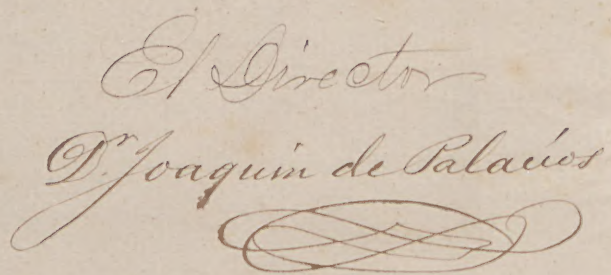 El Director
Dr. Joaquin de Palacios